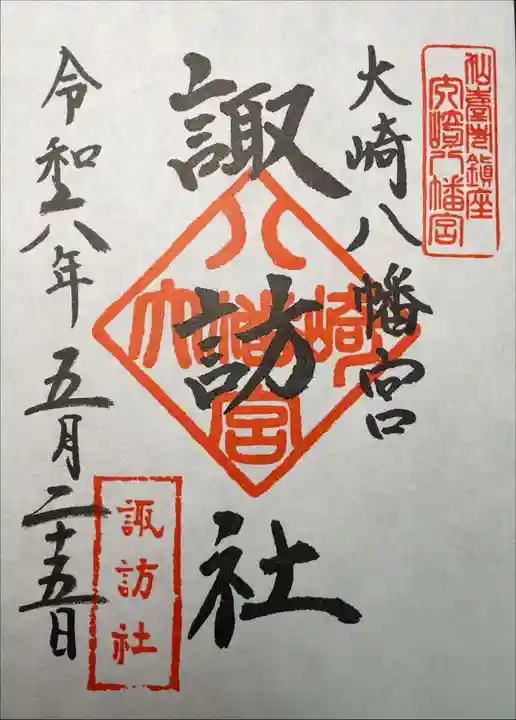 仙臺鎮座
大崎八幡宮
大崎八幡宮
諏訪社
大崎八幡宮
令和六年五月二十五日
諏訪社